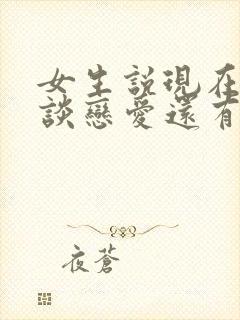 女生說現在
談戀愛還有
夜蒼